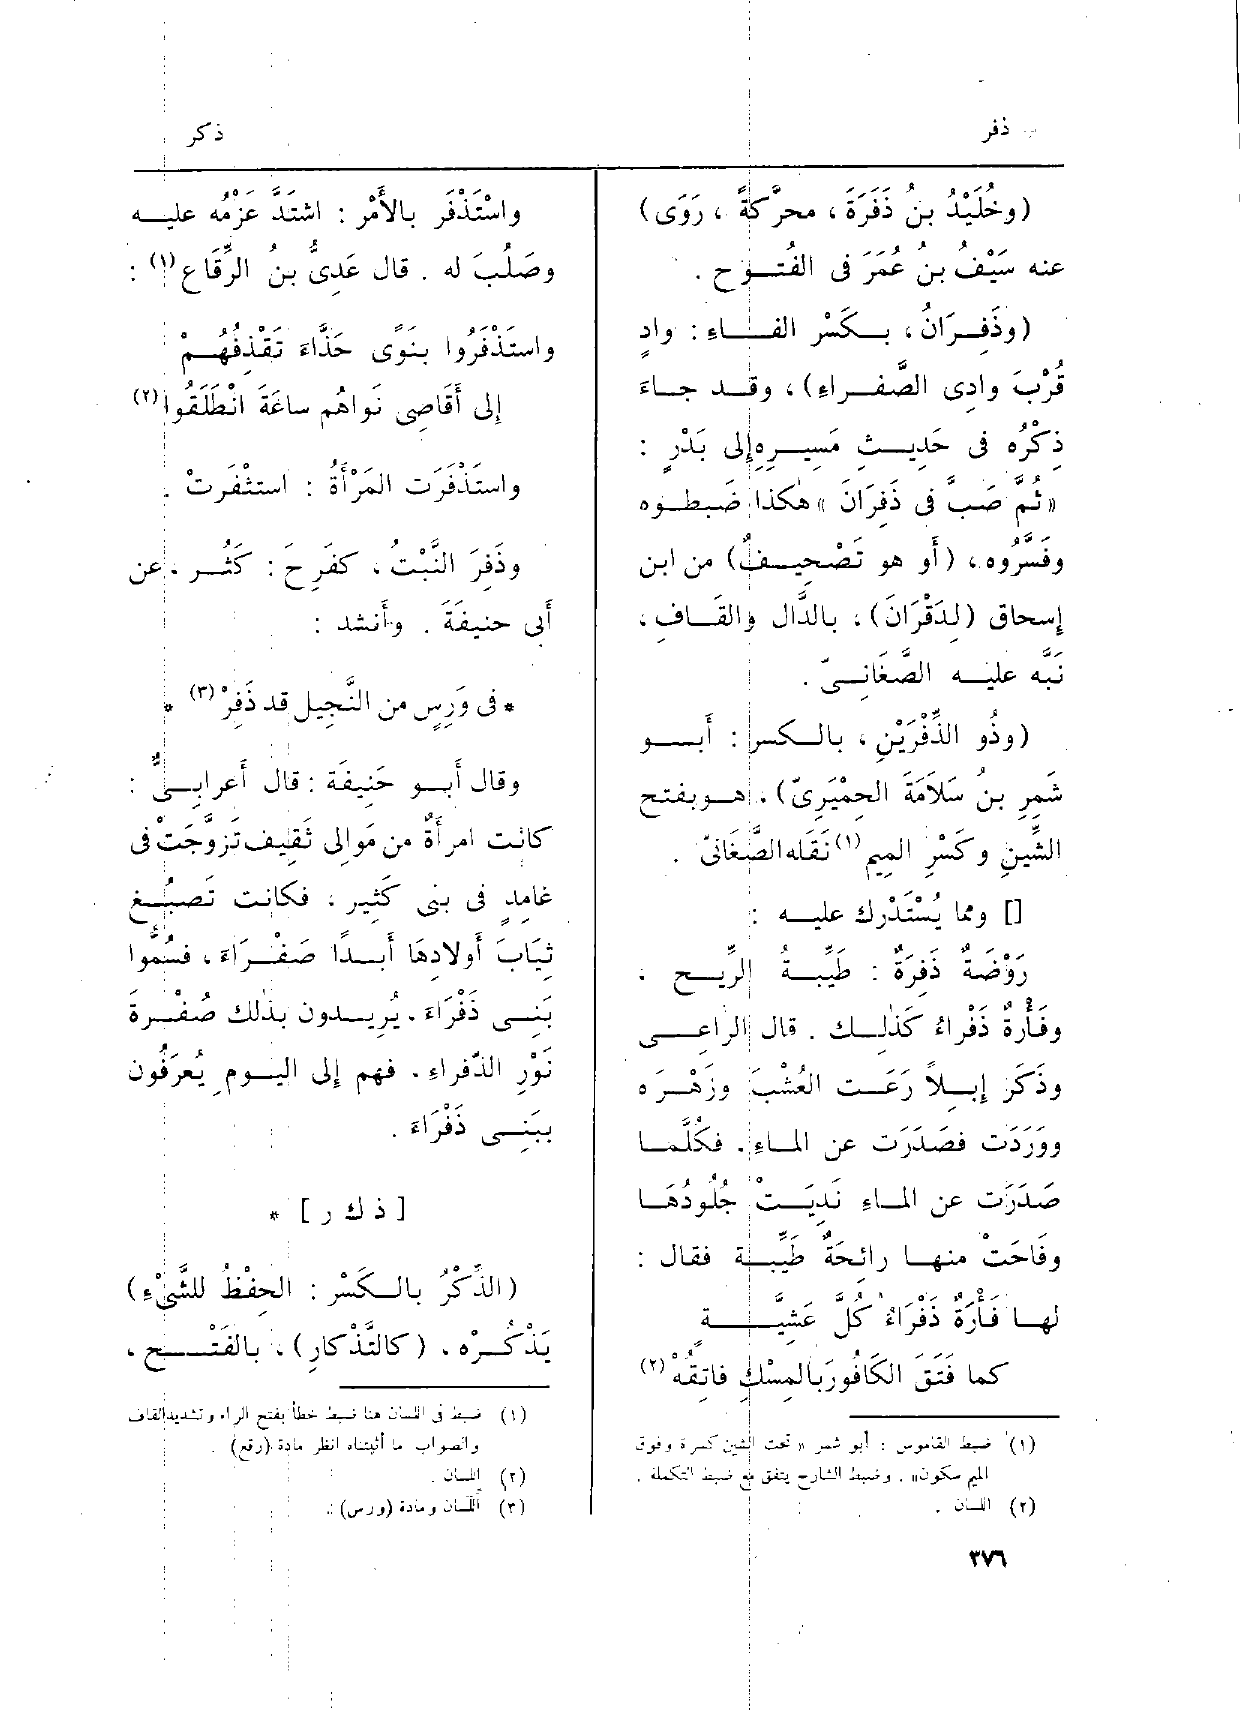 ذفر
ذكر
(وخُلَيْدُ بنُ ذَفَرَةَ ، محرَّكةً ، رَوَى)
عنه سَيْفُ بن عُمَرَ فى الفُتُوح .
(وذَفِرَانُ ، بكَسْر الفاءِ : وادٍ
قُرْبَ وادى الصَّفراءِ) ، وقد جاءَ
ذكْرُه فى حَدِيث مَسِيرِهِ إلى بَدْرٍ :
« ثُمَّ صَبَّ فى ذَفِرَانَ » هكذا ضَبطوه
وفَسَّرُوه ، (أو هو تَصْحِيفٌ) من ابن
إسحاق (لِدَقْرَانَ) ، بالدَّال والقَاف ،
نَبَّه عليه الصَّغَانِىّ .
(وذُو الذِّفْرَيْنِ ، بالكسر : أَبو
شَمِرِ بنُ سَلاَمَةَ الحِمْيَرِىّ) ، هو بفتح
الشِّينِ وكَسْرِ الميم (١) نَقَله الصَّغَانىّ .
[] ومما يُسْتَدْرك عليه :
رَوْضَةٌ ذَفِرَةٌ : طَيِّبةُ الرِّيح .
وفَأْرةٌ ذَفْراءُ كَذلك . قال الراعى
وذَكَرَ إبِلاً رَعَت العُشْبَ وزَهْرَه
ووَرَدَت فصَدَرَت عن الماءِ . فكُلَّما
صَدَرَت عن الماءِ نَدِيَتْ جُلُودُهَا
وفَاحَتْ منها رائحَةٌ طَيِّبة فقال :
لها فَأْرَةٌ ذَفْرَاءُ كُلَّ عَشِيَّة
كما فَتَقَ الكافُورَ بالمِسْكِ فاتِقُهْ (٢)
(١) ضبط القاموس : أبو شمر « تحت الشين كسرة وفوق
الميم سكون» . وضبط الشارح يتفق مع ضبط التكملة .
(٢) اللسان .
٣٧٦
واسْتَذْفَر بالأَمْر : اشتدَّ عَزْمُه عليه
وصَلُبَ له . قال عَدِىُّ بنُ الرِّقَاع (١) :
واستَذْفَرُوا بنَوًى حَذَّاءَ تَقْذِفُهُمْ
إلى أَقَاصِى نَواهُم ساعَةَ انْطَلَقُوا (٢)
واستَذْفَرَت المَرْأَةُ : استثْفَرتْ .
وذَفِرَ النَّبْتُ ، كفَرِحَ : كَثُر ، عن
أَبى حنيفَةَ . وأَنشد :
* فى وَرِسٍ من النَّجِيلِ قد ذَفِرْ (٣) *
وقال أَبو حَنِيفَة : قال أَعرابىٌّ :
كانت امرأَةٌ من مَوالِى ثَقِيف تزوَّجَتْ فى
غامِدٍ فى بنى كَثِير ، فكانت تَصبُغ
ثِيَابَ أَولادهَا أَبدًا صَفْرَاءَ ، فسُمُّوا
بَنِى ذَفْرَاءَ . يُريدون بذلك صُفْرةَ
نَوْرِ الذَّفراءِ . فهم إلى اليومِ يُعرَفُون
ببَنِى ذَفْرَاءَ .
[ ذ ك ر ] *
(الذِّكْرُ بالكَسْر : الحفْظُ للشَّىْءِ)
يَذْكُرْه ، (كالتَّذْكَار) ، بالفَتْح ،
(١) ضبط فى اللسان هنا ضبط خطأ بفتح الراء وتشديد القاف
والصواب ما أثبتناه انظر مادة (رقع) .
(٢) اللسان .
(٣) اللسان ومادة (ورس) .